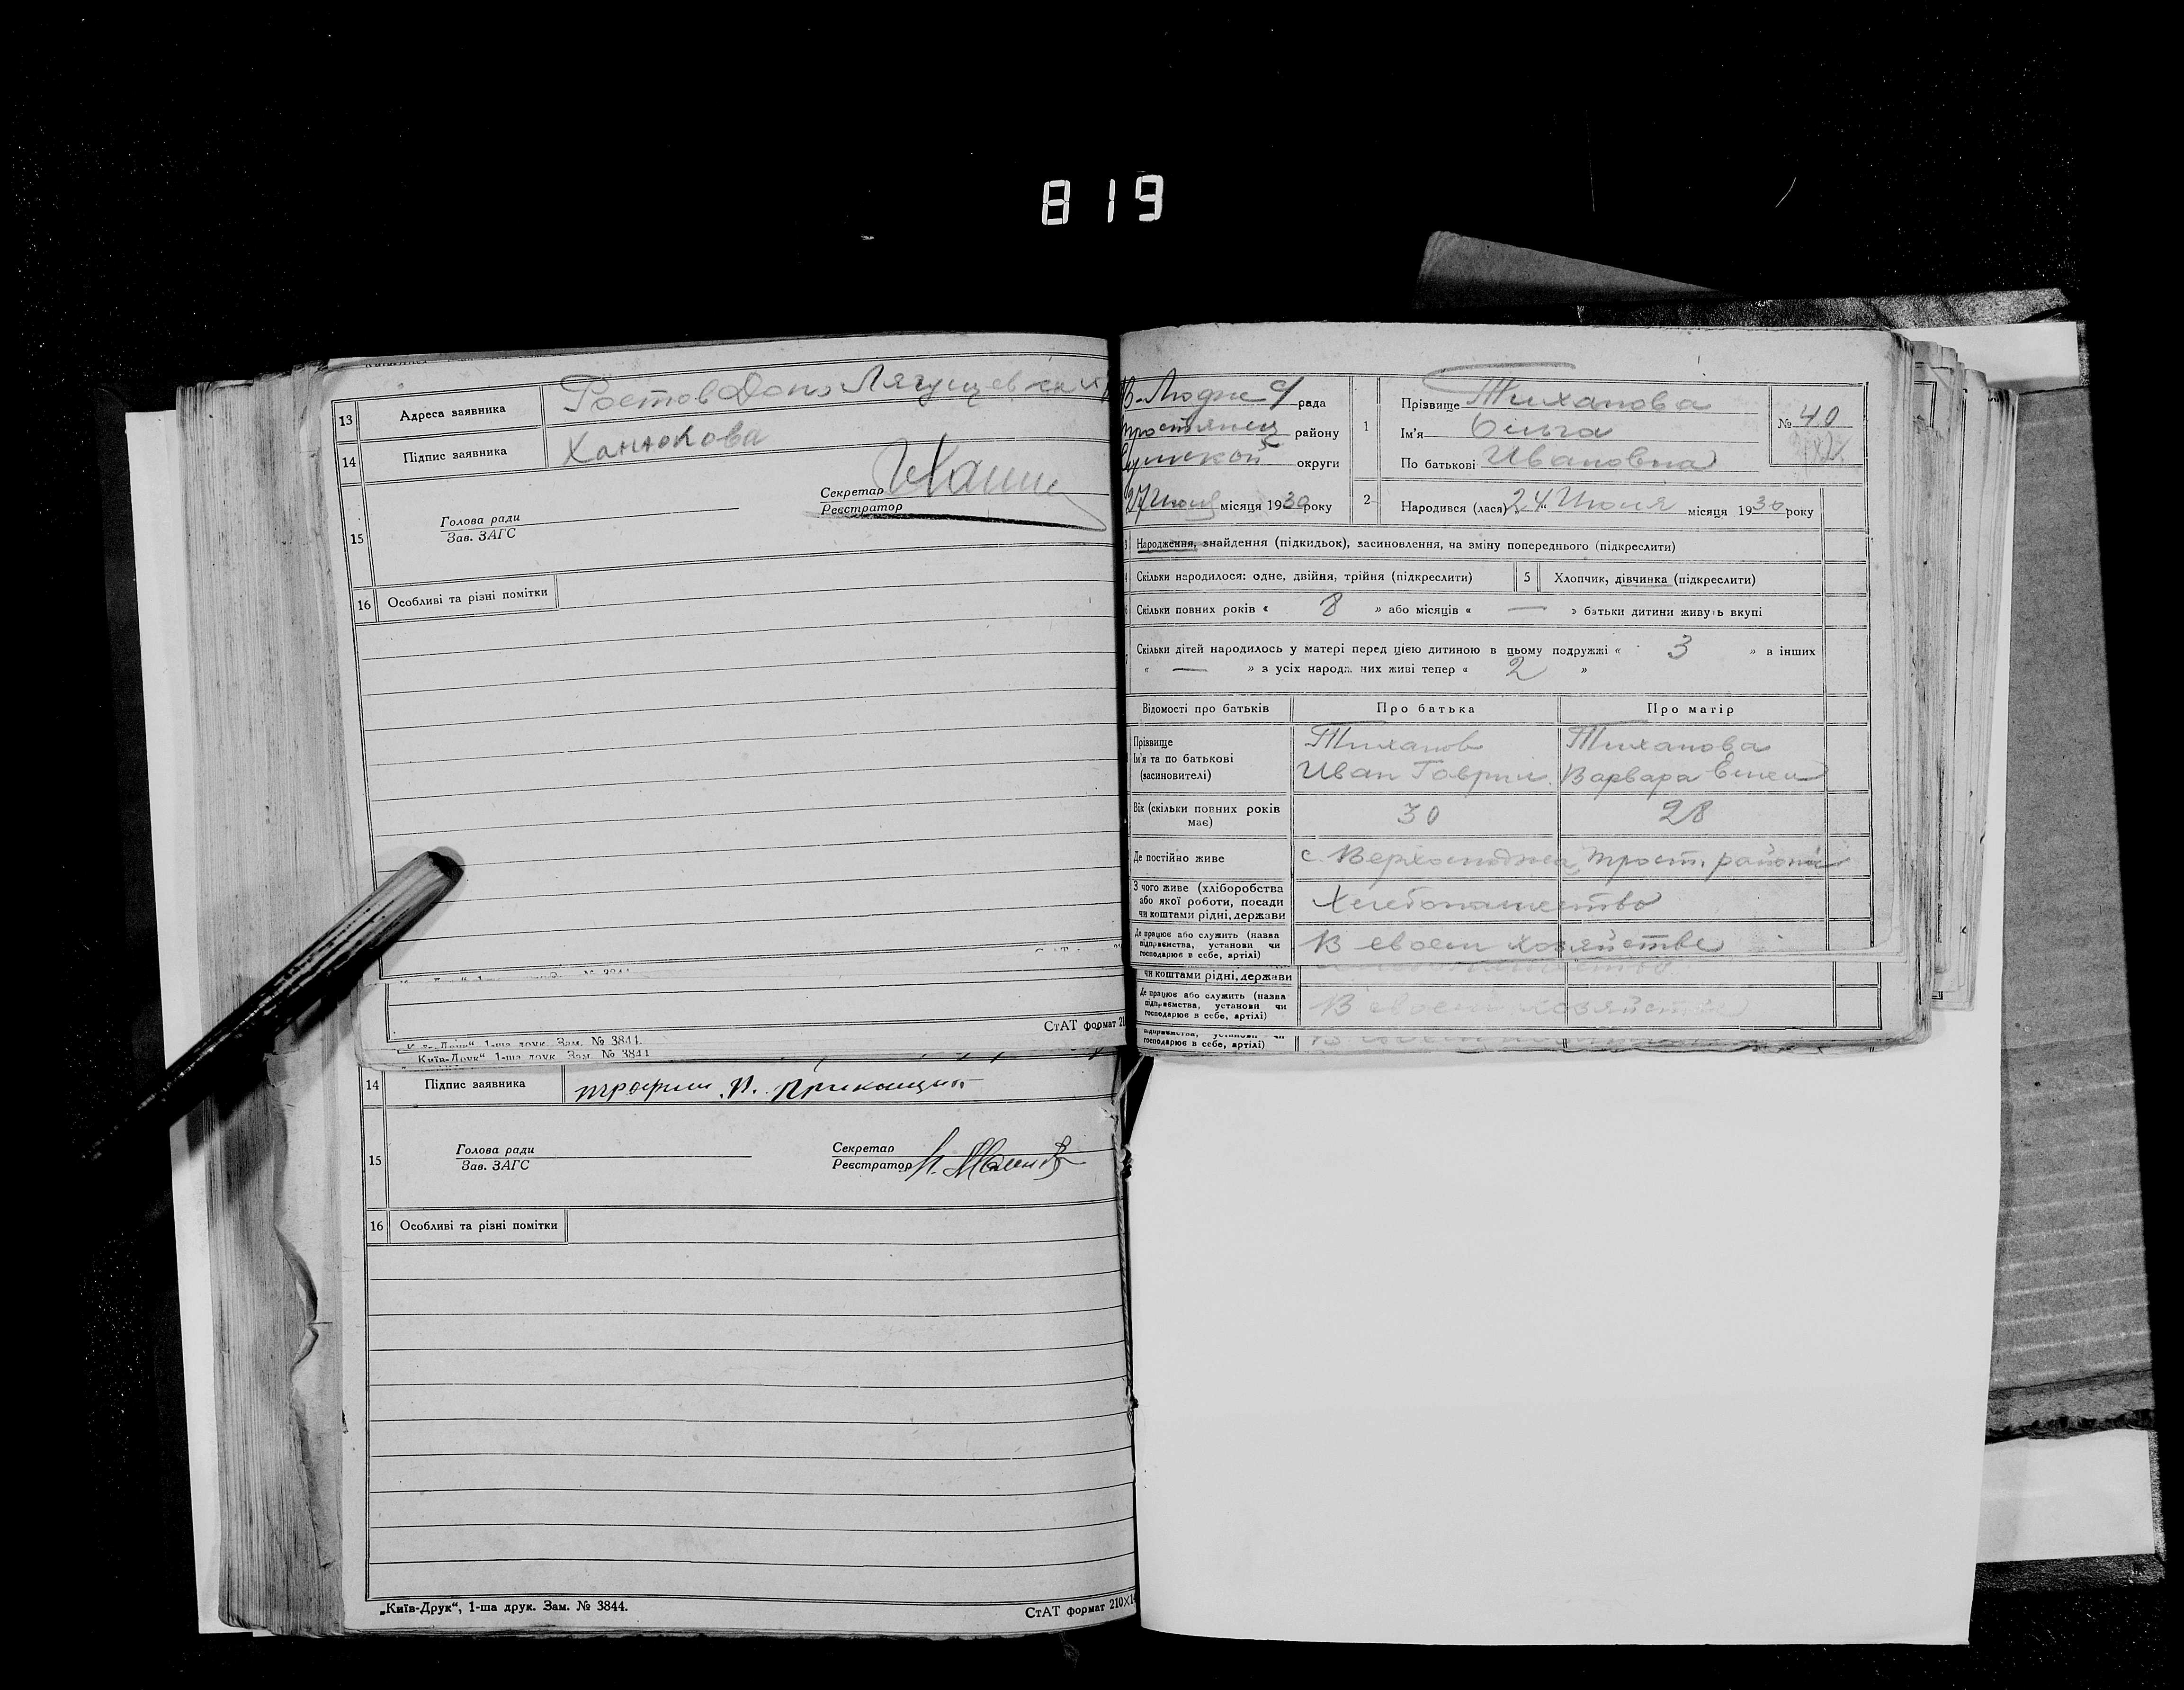 819
13 Адреса заявника Ростов Дону Лягушевск
14 Підпис заявника Ханюкова
15 Голова ради
Зав. ЗАГС
Секретар
Реєстратор
16 Особливі та різні помітки
СтАТ формат 21
„Київ-Друк“, 1-ша друк. Зам. № 3844.
„Київ-Друк“, 1-ша друк. Зам. № 3844
14 Підпис заявника
15 Голова ради
Зав. ЗАГС
Секретар
Реєстратор
16 Особливі та різні помітки
„Київ-Друк“, 1-ша друк. Зам. № 3844.
СтАТ формат 210×1
рада
району
Сумской округи
27 Июня місяця 1930 року
1 Прізвище Тиханова
Ім'я Ольга
По батькові Ивановна
№ 40
2 Народився (лася) 24 Июня місяця 1930 року
3 Народження, знайдення (підкидьок), засиновлення, на зміну попереднього (підкреслити)
Скільки народилося: одне, двійня, трійня (підкреслити) 5 Хлопчик, дівчинка (підкреслити)
6 Скільки повних років « 8 » або місяців « — » батьки дитини живуть вкупі
Скільки дітей народилось у матері перед цією дитиною в цьому подружжі « 3 » в інших
« — » з усіх народж. них живі тепер « 2 »
Відомості про батьків Про батька Про матір
Прізвище
Ім'я та по батькові
(засиновителі)
Тиханов
Иван Гаврил.
Тиханова
Варвара
Вік (скільки повних років
має)
30 28
Де постійно живе с. Трост. района
З чого живе (хліборобства
або якої роботи, посади
чи коштами рідні, держави
Хлебопашество
Де працює або служить (назва
підприємства, установи чи
господарює в себе, артілі)
В своем хозяйстве
чи коштами рідні, держави
Де працює або служить (назва
підприємства, установи чи
господарює в себе, артілі)
В своем хозяйстве
господарює в себе, артілі)